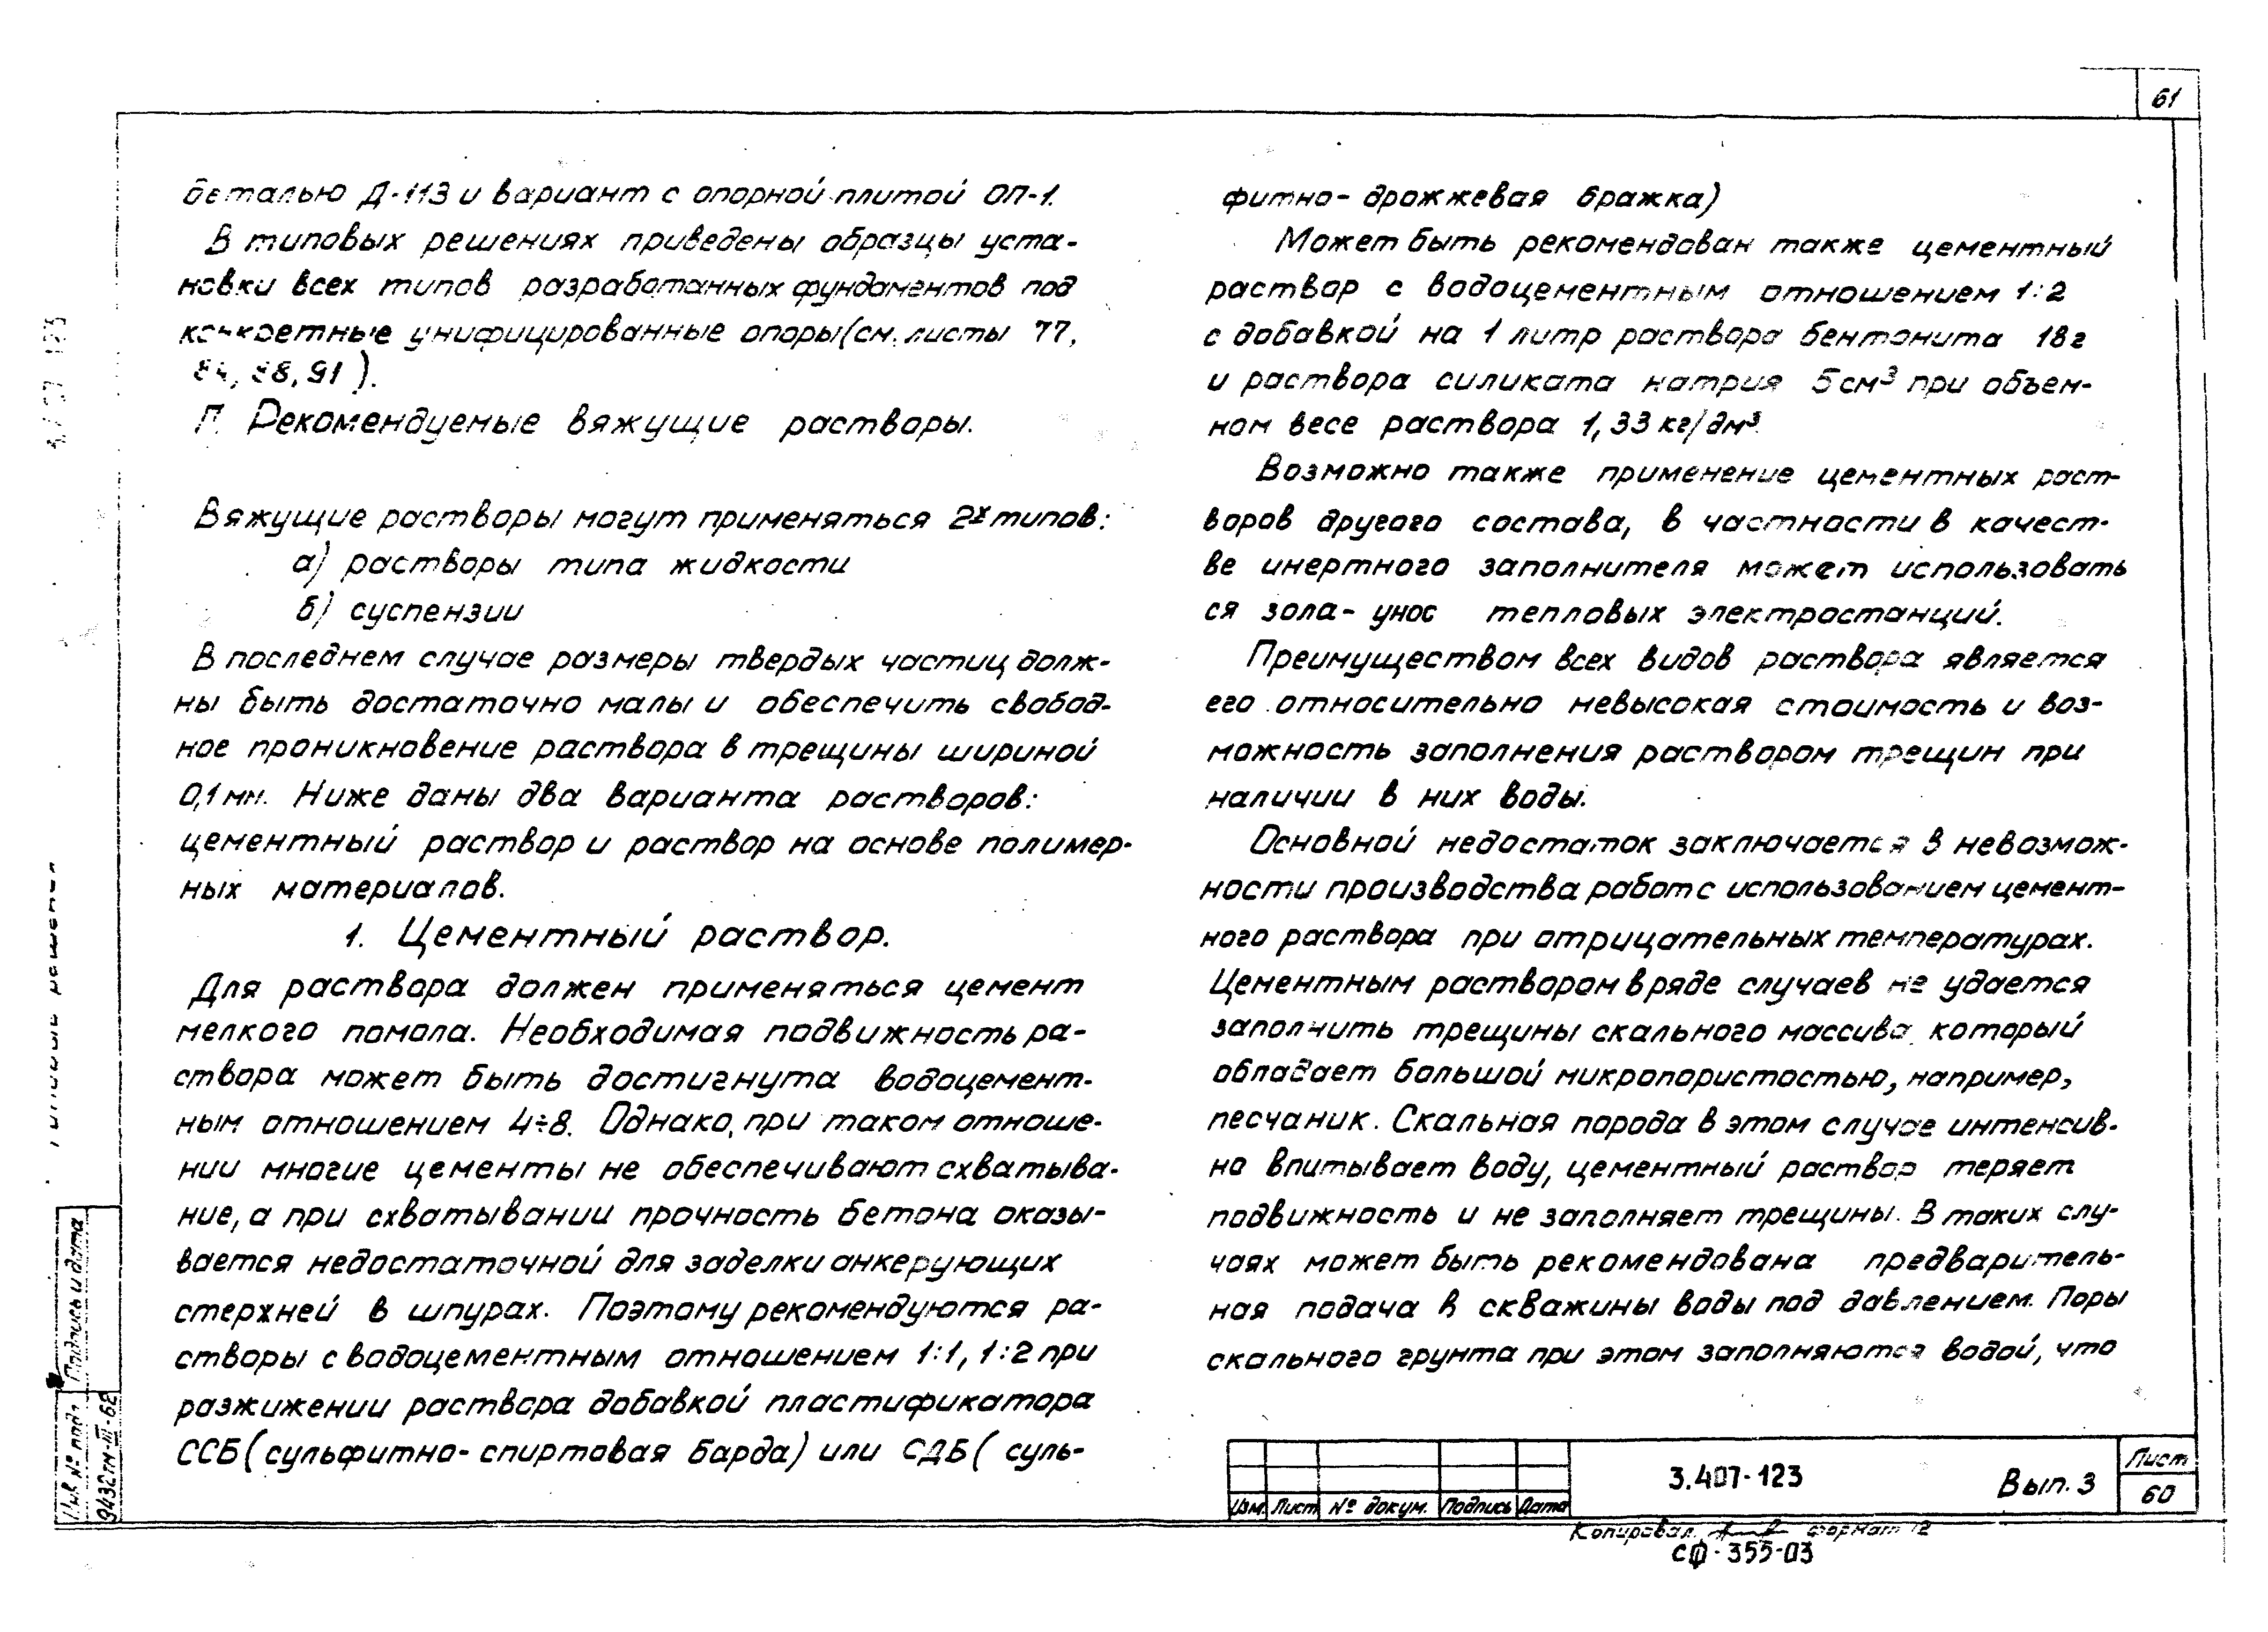 61
деталью Д-113 и вариант с опорной плитой ОП-1.
В типовых решениях приведены образцы уста-
новки всех типов разработанных фундаментов под
конкретные унифицированные опоры (см. листы 77,
84, 88, 91).
П. Рекомендуемые вяжущие растворы.
Вяжущие растворы могут применяться 2х типов:
а) растворы типа жидкости
б) суспензии
В последнем случае размеры твердых частиц долж-
ны быть достаточно малы и обеспечить свобод-
ное проникновение раствора в трещины шириной
0,1 мм. Ниже даны два варианта растворов:
цементный раствор и раствор на основе полимер-
ных материалов.
1. Цементный раствор.
Для раствора должен применяться цемент
мелкого помола. Необходимая подвижность ра-
створа может быть достигнута водоцемент-
ным отношением 4÷8. Однако, при таком отноше-
нии многие цементы не обеспечивают схватыва-
ние, а при схватывании прочность бетона оказы-
вается недостаточной для заделки анкерующих
стержней в шпурах. Поэтому рекомендуются ра-
створы с водоцементным отношением 1:1, 1:2 при
разжижении раствора добавкой пластификатора
ССБ (сульфитно-спиртовая барда) или СДБ (суль-
фитно-дрожжевая бражка)
Может быть рекомендован также цементный
раствор с водоцементным отношением 1:2
с добавкой на 1 литр раствора бентонита 18г
и раствора силиката натрия 5см³ при объем-
ном весе раствора 1,33 кг/дм³.
Возможно также применение цементных раст-
воров другого состава, в частности в качест-
ве инертного заполнителя может использовать
ся зола-унос тепловых электростанций.
Преимуществом всех видов раствора является
его относительно невысокая стоимость и воз-
можность заполнения раствором трещин при
наличии в них воды.
Основной недостаток заключается в невозмож-
ности производства работ с использованием цемент-
ного раствора при отрицательных температурах.
Цементным раствором в ряде случаев не удается
заполнить трещины скального массива который
обладает большой микропористостью, например,
песчаник. Скальная порода в этом случае интенсив-
но впитывает воду, цементный раствор теряет
подвижность и не заполняет трещины. В таких слу-
чаях может быть рекомендована предваритель-
ная подача в скважины воды под давлением. Поры
скального грунта при этом заполняются водой, что
Изм. Лист № докум. Подпись Дата
3.407-123 Вып. 3
Лист
60
Копировал формат 12
СФ-355-03
Типовые решения
Подпись и дата
Инв № подл
9432тм-III-62